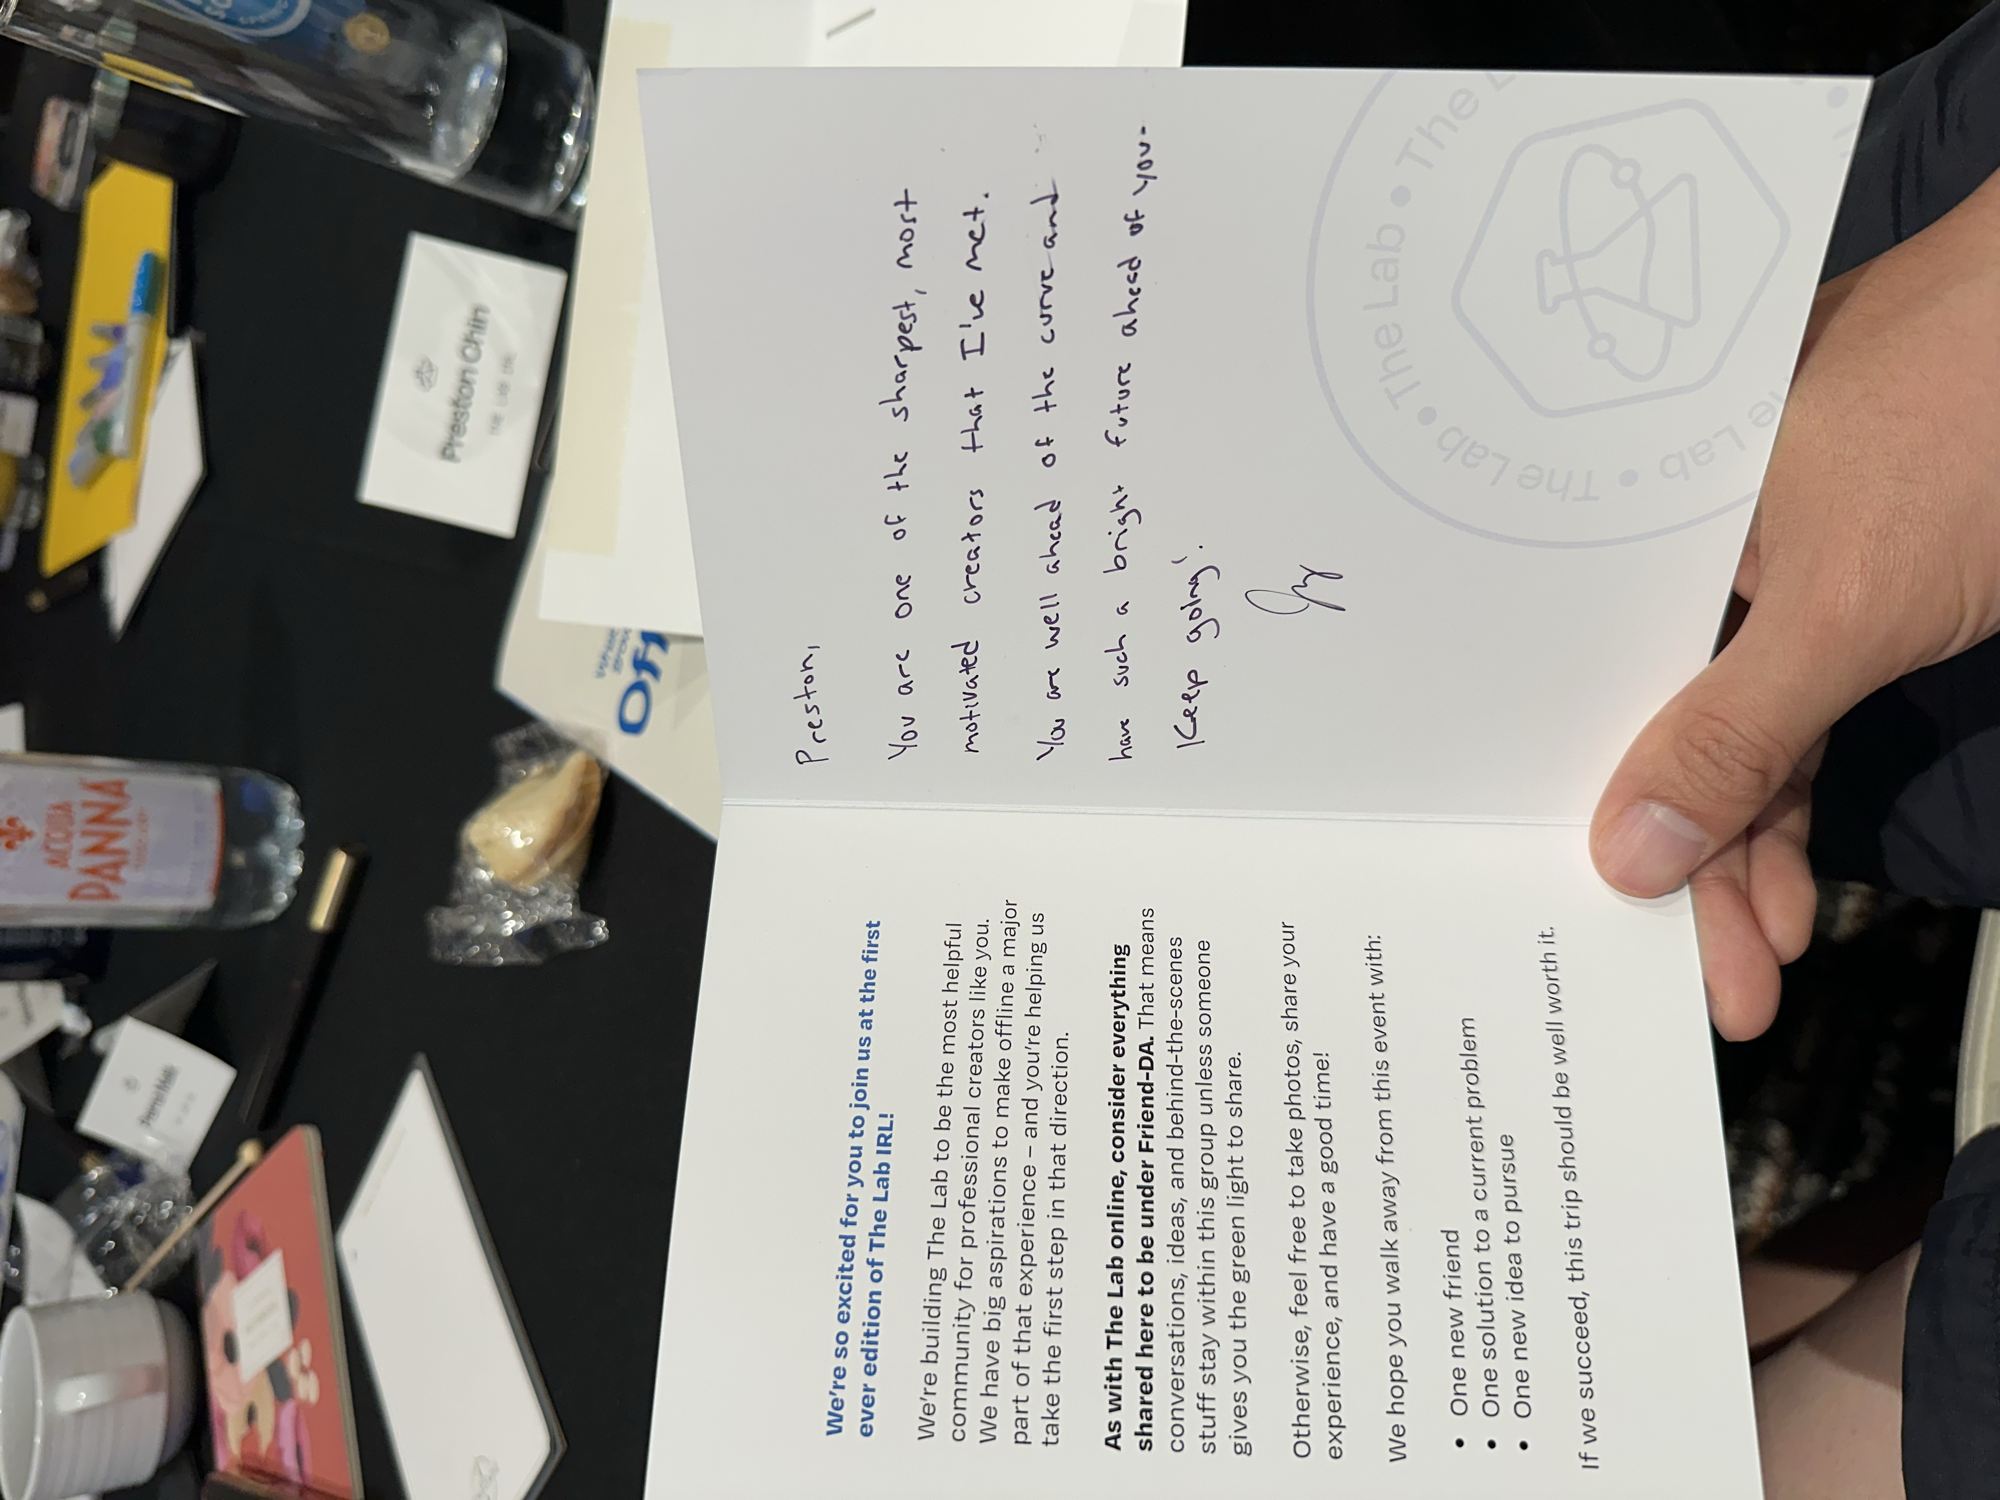 We're so excited for you to join us at the first
ever edition of The Lab IRL!
We're building The Lab to be the most helpful
community for professional creators like you.
We have big aspirations to make offline a major
part of that experience – and you're helping us
take the first step in that direction.
As with The Lab online, consider everything
shared here to be under Friend-DA. That means
conversations, ideas, and behind-the-scenes
stuff stay within this group unless someone
gives you the green light to share.
Otherwise, feel free to take photos, share your
experience, and have a good time!
We hope you walk away from this event with:
• One new friend
• One solution to a current problem
• One new idea to pursue
If we succeed, this trip should be well worth it.
Preston,
You are one of the sharpest, most
motivated creators that I've met.
You are well ahead of the curve and
have such a bright future ahead of you.
Keep going!
Jay
The Lab • The Lab • The Lab • The L
Preston Chin
THE LAB IRL
ACQUA
PANNA